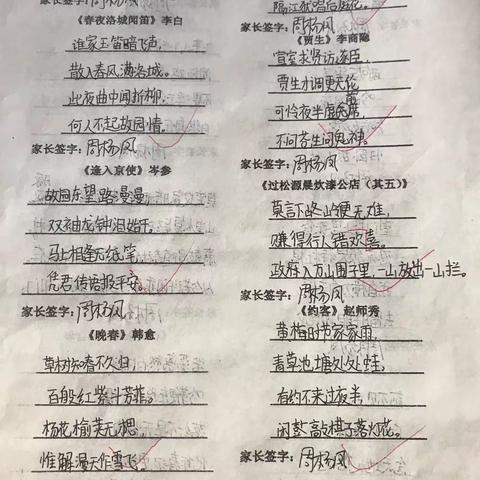 家长签字：周杨风
《春夜洛城闻笛》李白
谁家玉笛暗飞声，
散入春风满洛城。
此夜曲中闻折柳，
何人不起故园情。
家长签字：周杨风
《逢入京使》岑参
故园东望路漫漫
双袖龙钟泪始干。
马上相逢无纸笔，
凭君传语报平安。
家长签字：周杨风
《晚春》韩愈
草树知春不久归
百般红紫斗芳菲。
杨花榆荚无才思
惟解漫天作雪飞。
隔江犹唱后庭花。
家长签字：周杨风
《贾生》李商隐
宣室求贤访逐臣，
贾生才调更无伦
可怜夜半虚前席，
不问苍生问鬼神。
家长签字：周杨风
《过松源晨炊漆公店（其五）》
莫言下岭便无难，
赚得行人错欢喜。
政入万山围子里，一山放出一山拦。
家长签字：周杨风
《约客》赵师秀
黄梅时节家家雨，
青草池塘处处蛙，
有约不来过夜半，
闲敲棋子落灯花。
家长签字：周杨风